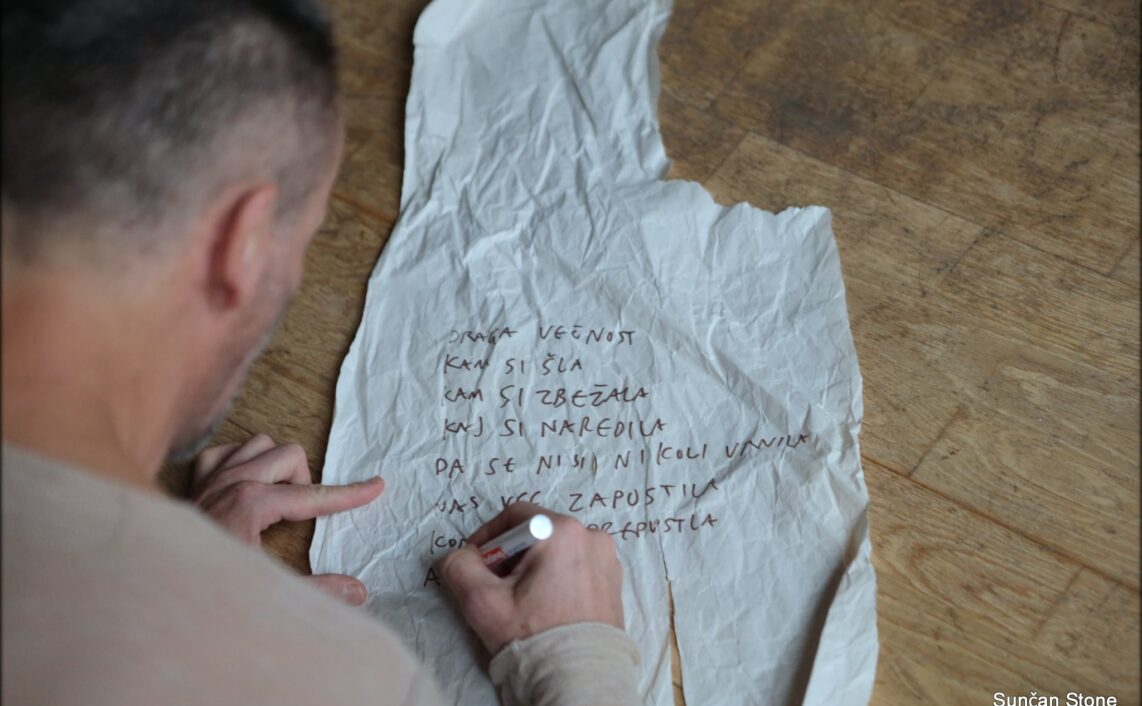 DRAGA VEČNOST
KAM SI ŠLA
KAM SI ZBEŽALA
KAJ SI NAREDILA
DA SE NISI NIKOLI VRNILA
NAS VSE ZAPUSTILA
PREPUSTLA
A
Sunčan Stone